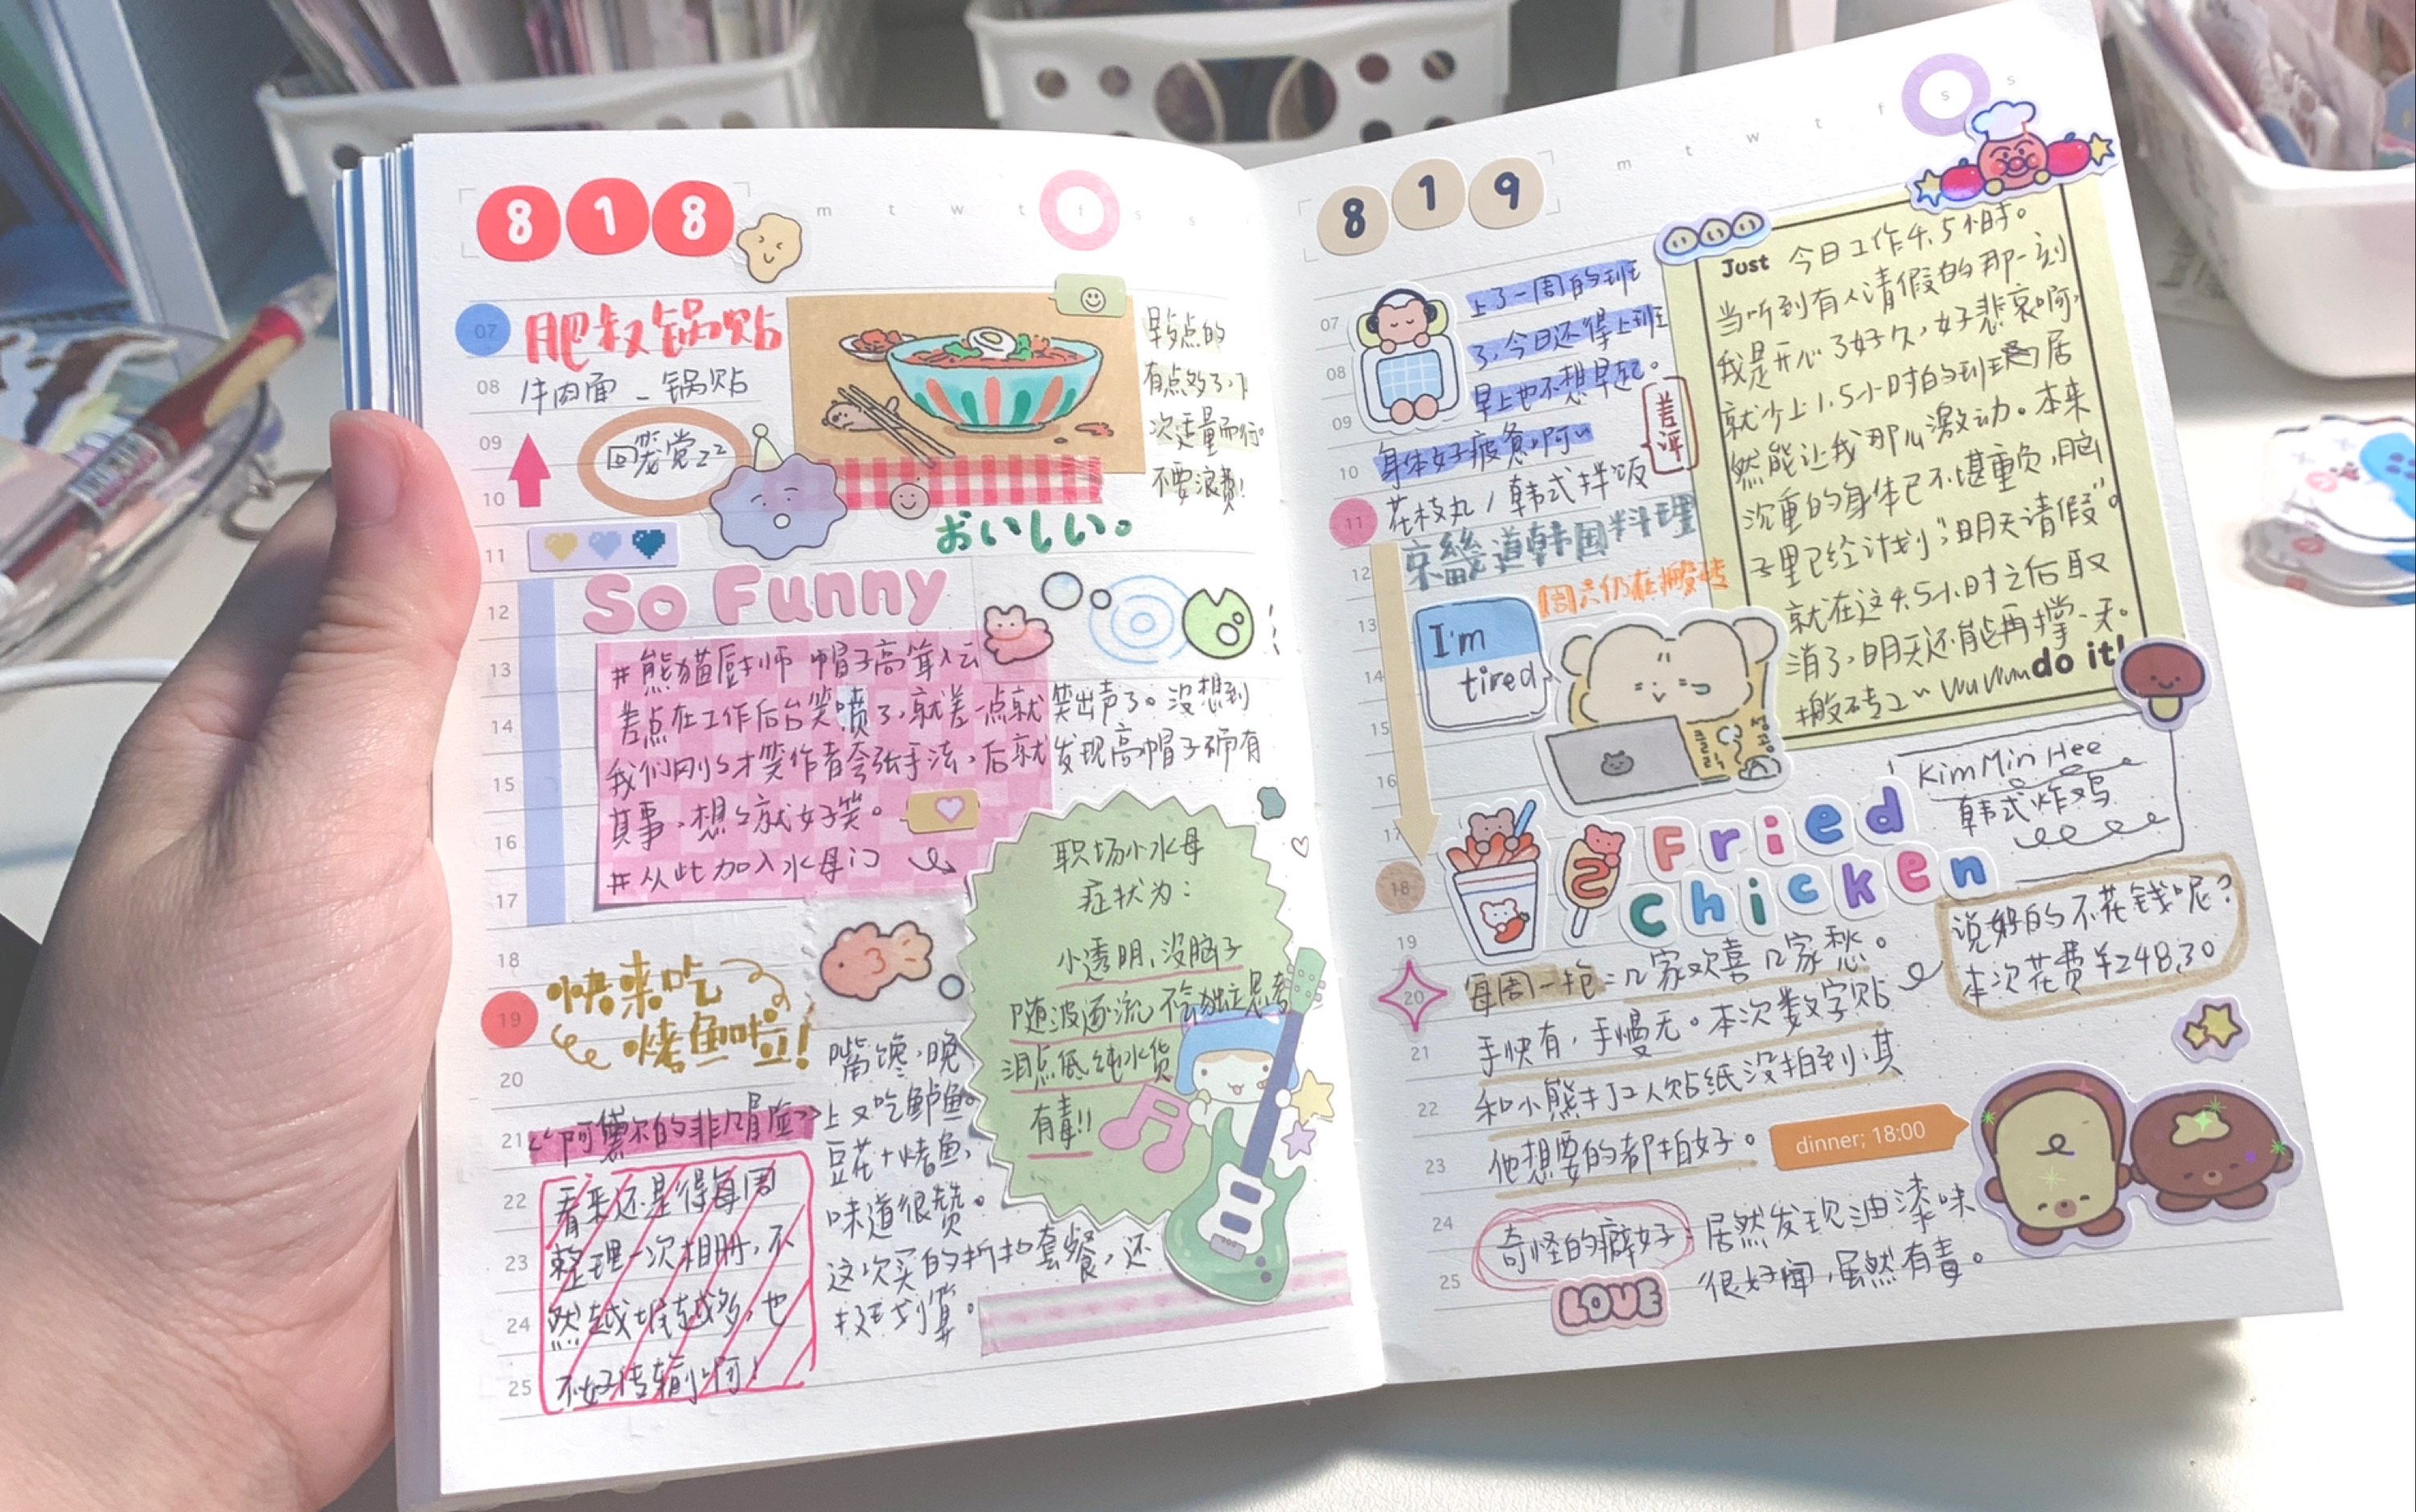 818
m t w t f s s
07
肥叔锅贴
08
牛肉面 - 锅贴
09
回笼觉zz
10
早餐点的
有点多了,下
次适量而行。
不要浪费!
おいしい。
11
So Funny
12
13
#熊猫厨师 帽子高耸入云
14
差点在工作后台笑喷了,就差一点就笑出声了。没想到
15
我们刚刚才笑作者夸张手法,后就发现高帽子确有
16
其事,想想就好笑。
17
#从此加入水母门
职场小水母
症状为:
小透明,没脑子
随波逐流,不会独立思考
泪点低,纯水货
有毒!!
18
快来吃
19
烤鱼啦!
20
嘴馋,晚
上又吃鲈鱼。
豆花+烤鱼,
味道很赞。
这次买的折扣套餐,还
挺划算。
21
“阿黛尔的非凡冒险”
22
看来还是得每周
23
整理一次相册,不
24
然越堆越多,也
25
不好传输啊!
819
m t w t f s s
07
上了一周的班
08
了,今日还得上班
09
早上也不想早起。
10
身体好疲惫啊~
差评
11
花枝丸/韩式拌饭
12
京畿道韩国料理
周六仍在搬砖
13
I'm
tired
14
15
16
17
Just 今日工作4.5小时。
当听到有人请假的那一刻
我是开心了好久,好悲哀啊,
就少上1.5小时的班居
然能让我那么激动。本来
沉重的身体已不堪重负,脑
子里已经计划“明天请假”。
就在这4.5小时之后取
消了,明天还能再撑一天。
搬砖工~ wuwuwu
do it!
Kim Min Hee
韩式炸鸡
Fried
Chicken
18
19
说好的不花钱呢?
本次花费¥248.30
20
每周一抢:几家欢喜几家愁。
21
手快有,手慢无。本次数字贴
22
和小熊打工人贴纸没拍到,其
23
他想要的都拍好。
dinner; 18:00
24
奇怪的癖好:居然发现油漆味
25
很好闻,虽然有毒。
LOVE